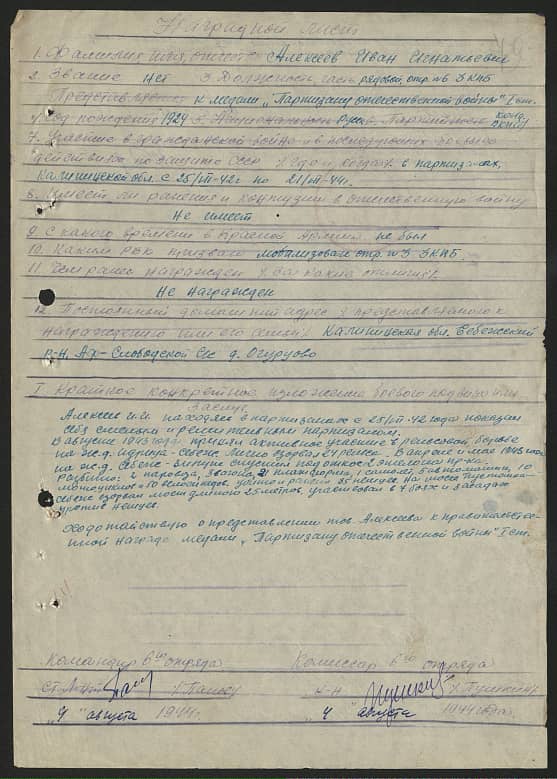 Наградной лист
1. Фамилия имя, отчест. Алексеев Иван Игнатьевич
2. Звание нет 3. Должность, часть рядовой, отр. №6 3 КПБ
Представляется к медали „Партизану отечественной войны" I ст.
Год рождения 1924 Национальность русск. Партийность канд. ВКП(б)
7. Участие в гражданской войне и в последующих боевых
действиях по защите СССР (где и когда) в партиз-ах,
Калининской обл. с 25/VII-42г по 21/VII-44г.
8. Имеет ли ранения и контузии в отечественную войну
Не имеет
9. С какого времени в Красной Армии не был
10. Каким РВК призван мобилизован отр. №3 3 КПБ
11. Чем ранее награжден (за какие отличия)
Не награжден
12. Постоянный домашний адрес представляемого к
награждению или его семьи) Калининская обл. Себежский
р-н, Ах-Слободской с/с д. Огурцово
I. Краткое конкретное изложение боевого подвига или
заслуг
Алексеев И.И. находясь в партизанах с 25/VII-42 года показал
себя смелым и решительным партизаном.
В августе 1943 года принял активное участие в рельсовой борьбе
на ж.д. Идрица-Себеж лично взорвал 24 рельса. В апреле и мае 1943 года
на ж.д. Себеж- спустил под откос 3 эшелона пр-ка.
Разбито: 2 паровоза, 7 вагонов, 21 платформа, 1 самолет, 5 автомашин, 10
мотоциклов и 10 велосипедов, убито и ранено 35 немцев. На шоссе Пустошка-
Себеж взорвал мост длиною 25 метров, участвовал в 7 боях и засадах
против немцев.
Ходотайствую о представлении тов. Алексеева к правительстве-
нной награде медали „Партизану отечественной войны" I ст.
Командир 6го отряда Комиссар 6го отряда
ст. л-нт к-н /Пушкин/
„4" августа 1944г. „4" августа 1944 года